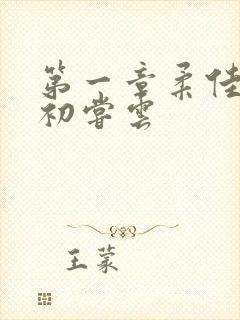 第一章柔佳
初尝雲
王蒙